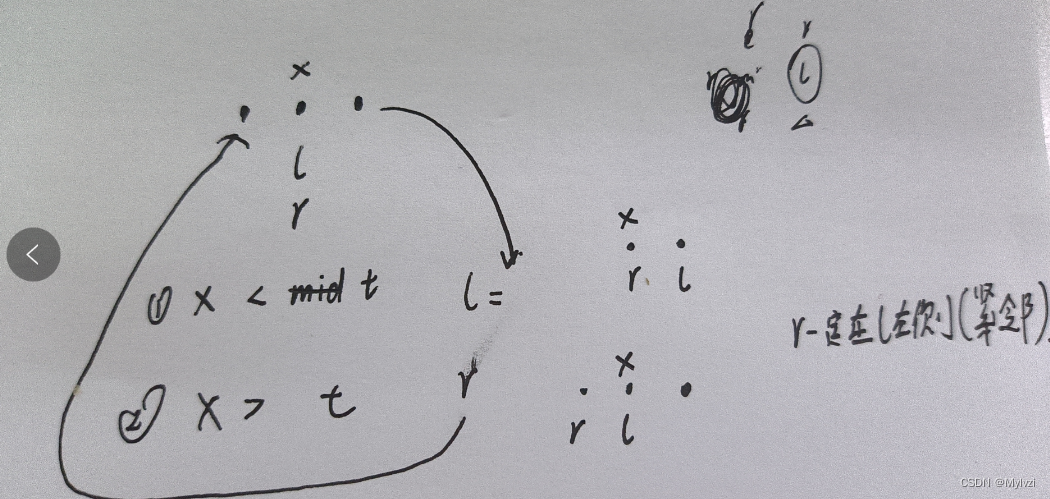 x
l
r
① x < mid t
l =
x
r l
② x > t
r
x
r l
r一定在l左侧(紧邻)
r
l
CSDN @Mylvzi